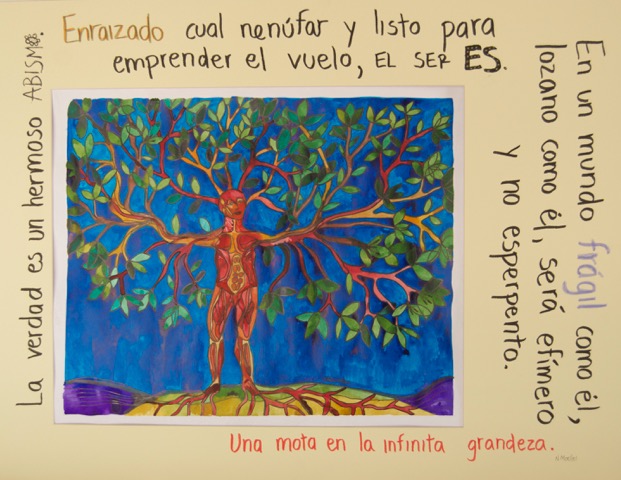 Enraizado cual nenúfar y listo para
emprender el vuelo, EL SER ES.
En un mundo frágil como él,
lozano como él, será efímero
y no esperpento.
Una mota en la infinita grandeza.
La verdad es un hermoso ABISMO.